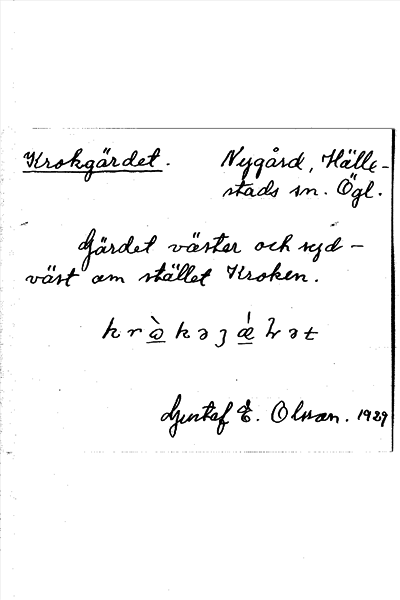 Krokgärdet. Nygård, Hälle-
stads sn. Ögl.
Gärdet väster och syd-
väst om stället Kroken.
Gustaf E. Olsson. 1929